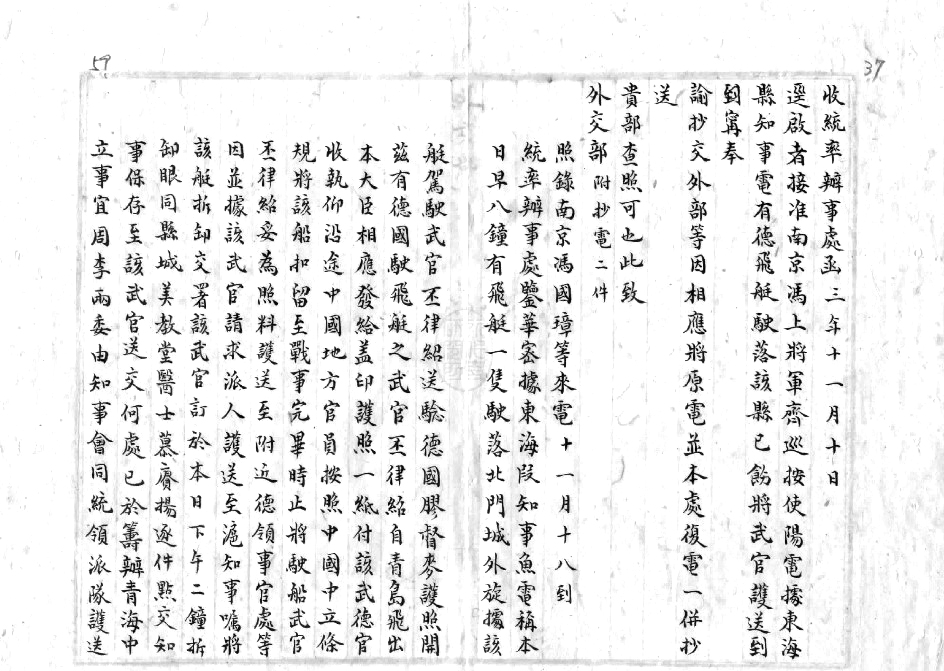 37
收統率辦事處函三年十一月十日
逕啟者接准南京馮上將軍齊巡按使陽電據東海
縣知事電有德飛艇駛落該縣已飭將武官護送到
到寗奉
諭抄交外部等因相應將原電並本處復電一併抄
送
貴部查照可也此致
外交部附抄電二件
照錄南京馮國璋等來電十一月十八到
統率辦事處鑒華密據東海段知事魚電稱本
日早八鐘有飛艇一隻駛落北門城外旋據該
59
艇駕駛武官丕律紹送驗德國膠督麥護照開
茲有德國駛飛艇之武官丕律紹自青島飛出
本大臣相應發給蓋印護照一紙付該武德官
收執仰沿途中國地方官員按照中國中立條
規將該船扣留至戰事完畢時止將駛船武官
丕律紹妥為照料護送至附近德領事官處等
因並據該武官請求派人護送至滬知事囑將
該艇拆卸交署該武官訂於本日下午二鐘拆
卸眼同縣城美教堂醫士慕賡揚逐件點交知
事保存至該武官送交何處已於籌辦青海中
立事宜周李兩委由知事會同統領派隊護送